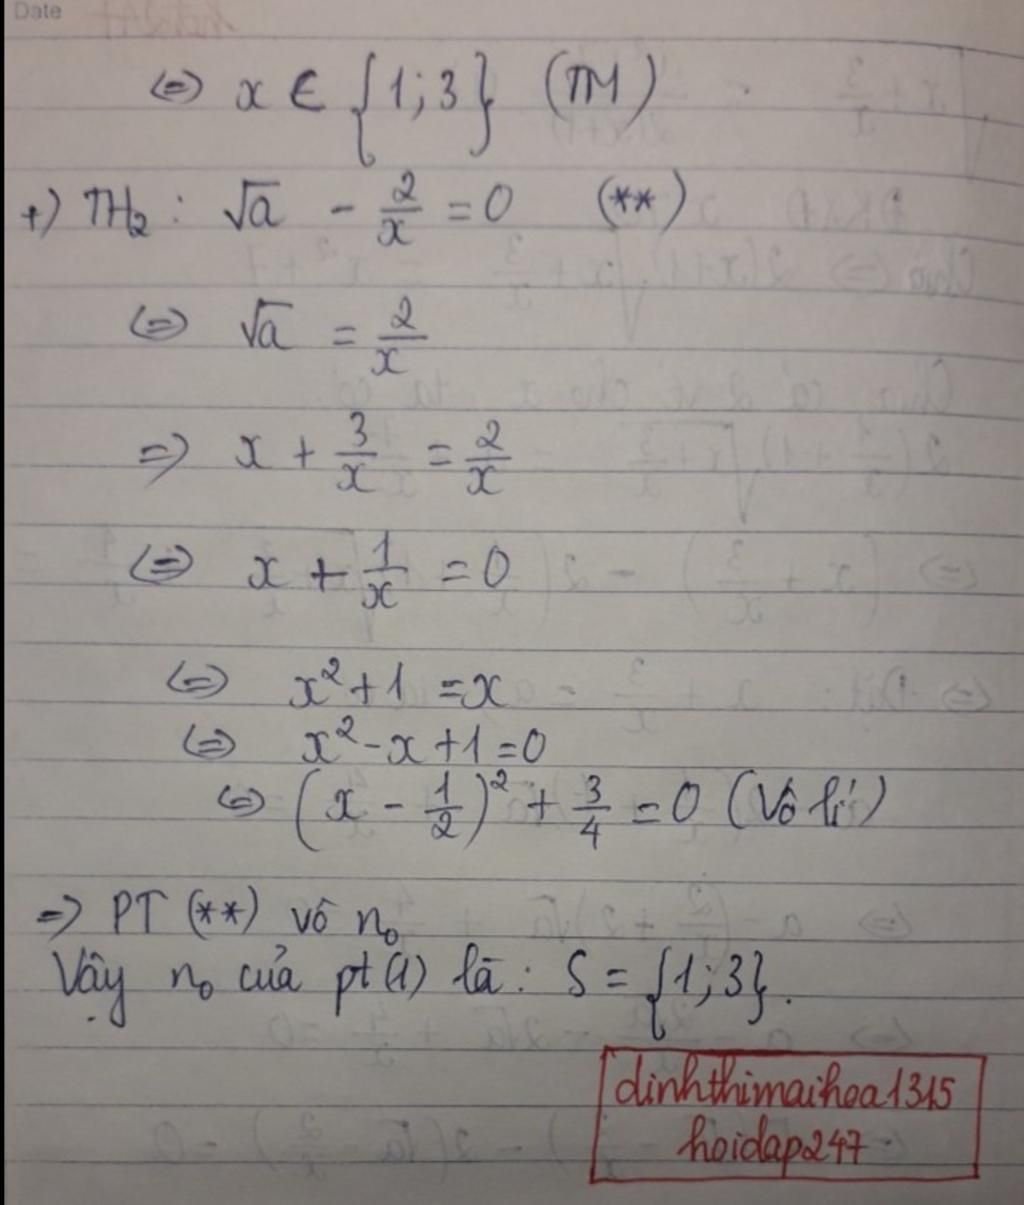 Date
⇔ x ∈ {1; 3} (TM)
+) TH₂ : √a - 2/x = 0 (**)
⇔ √a = 2/x
⇒ x + 3/x = 2/x
⇔ x + 1/x = 0
⇔ x² + 1 = x
⇔ x² - x + 1 = 0
⇔ (x - 1/2)² + 3/4 = 0 (Vô lí)
⇒ PT (**) vô n₀
Vậy n₀ của pt(1) là : S = {1; 3}.
dinhthimaihoa1315
hoidap247